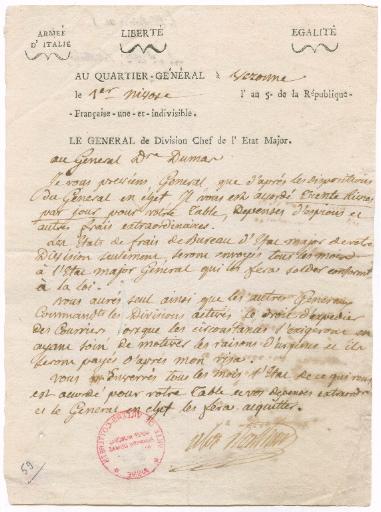 ARMÉE
D'ITALIE
LIBERTÉ
EGALITÉ
AU QUARTIER-GÉNÉRAL à Veronne
le 1er nivose l'an 5e de la République-
-Française-une-et-indivisible.
LE GENERAL de Division Chef de l'Etat Major.
au General Don Dumas
Je vous previens General que d'après les dispositions
du General en chef Il vous est accordé trente livres
par jour pour votre Table, Depenses d'espions et
autres frais extraordinaires.
Les Etats de frais de Bureau d'Etat major de votre
Division seulement, seront envoyés tous les mois
à l'Etat major General qui les fera solder conformt
à la loi.
Vous aurés seul ainsi que les autres Generaux
Commandts les Divisions actives le droit d'expedier
des Couriers lorsque les circonstances l'exigeront en
ayant soin de motiver les raisons d'urgence et ils
seront payés d'après mon visa.
Vous m'enverrés tous les mois l'Etat de ce qui vous
est accordé pour votre Table et vos depenses extraordres
et le General en chef les fera acquitter.
alex Berthier
59